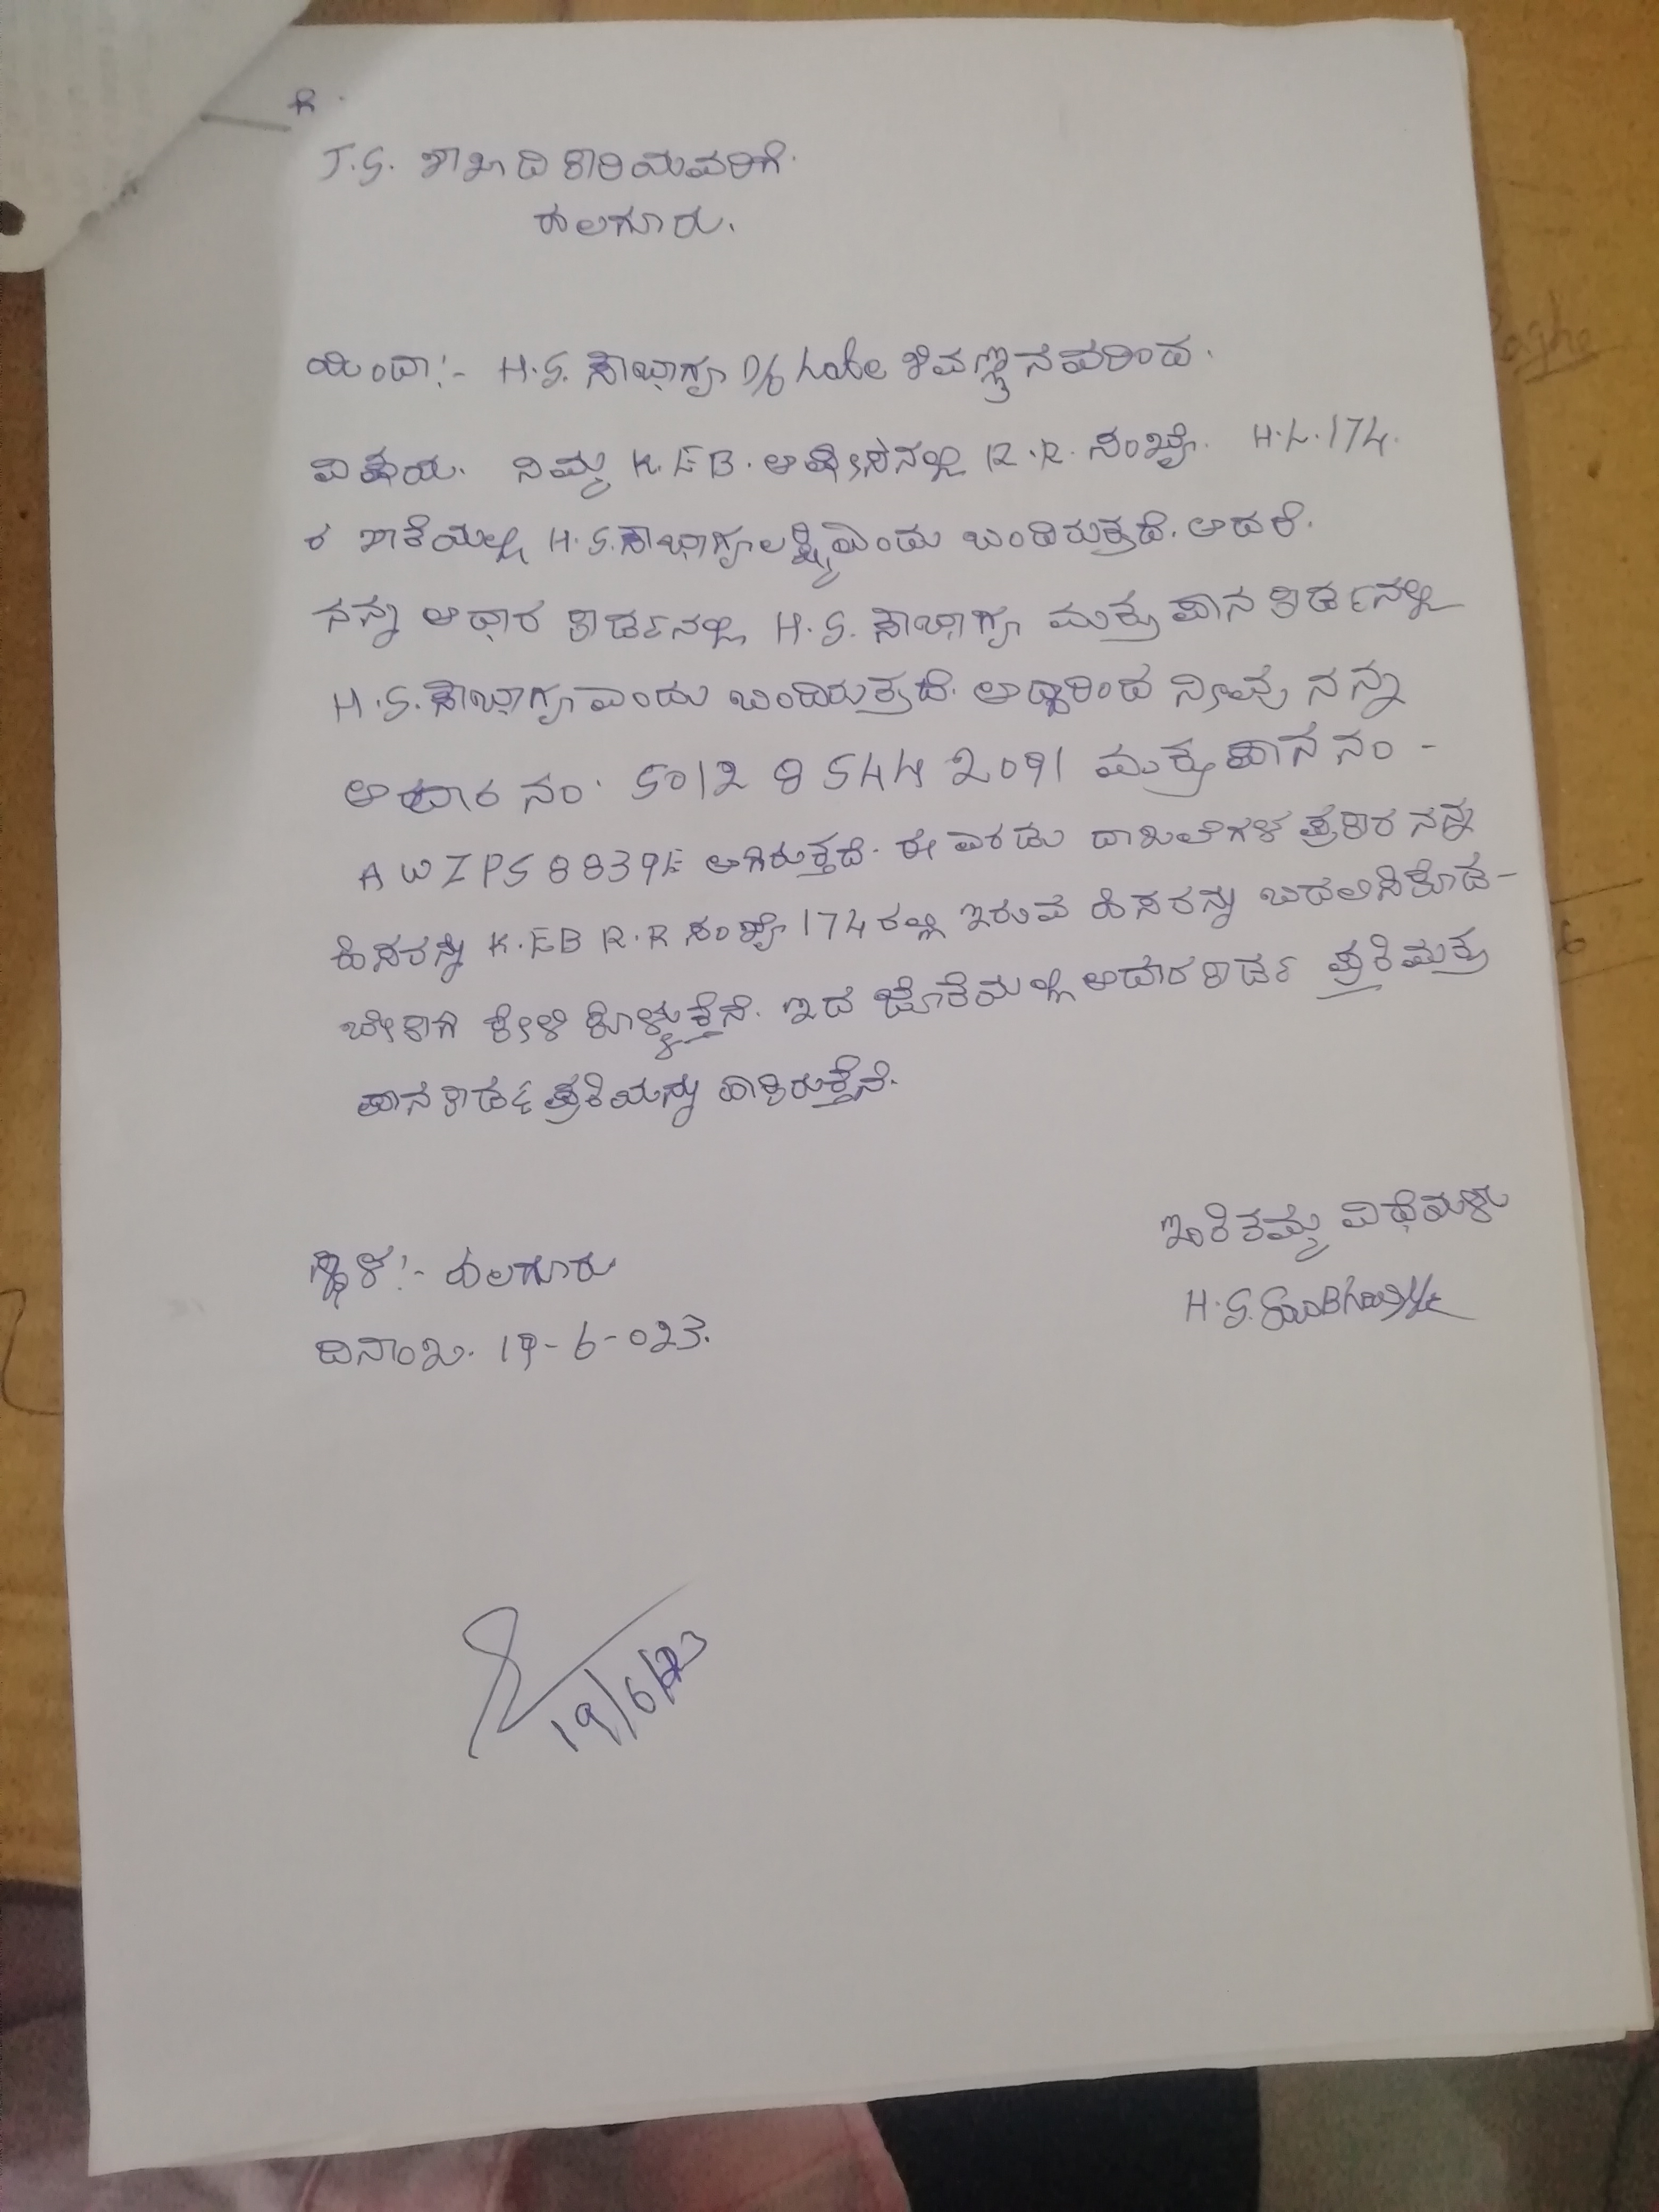 ಗೆ.
J.S. ಶಾಖಾದಿಕಾರಿಯವರಿಗೆ.
ಹಲಗೂರು.
ಯಿಂದಾ:- H.S. ಸೌಭಾಗ್ಯ D/o Late ಶಿವಣ್ಣನವರಿಂದ.
ವಿಷಯ. ನಿಮ್ಮ K.EB. ಆಫೀಸನಲ್ಲಿ R.R. ಸಂಖ್ಯೆ. H.L.174
ರ ಖಾತೆಯಲ್ಲಿ H.S.ಸೌಭಾಗ್ಯಲಕ್ಷ್ಮಿಎಂದು ಬಂದಿರುತ್ತದೆ. ಆದರೆ.
ನನ್ನ ಆಧಾರ ಕಾರ್ಡನಲ್ಲಿ H.S. ಸೌಭಾಗ್ಯ ಮತ್ತು ಪಾನ ಕಾರ್ಡನಲ್ಲಿ
H.S.ಸೌಭಾಗ್ಯಎಂದು ಬಂದಿರುತ್ತದೆ. ಆದ್ದರಿಂದ ನೀವು ನನ್ನ
ಆದಾರ ನಂ. 5012 8544 2091 ಮತ್ತು ಪಾನ ನಂ -
AWZPS8839E ಆಗಿರುತ್ತದೆ. ಈ ಎರಡು ದಾಖಲೆಗಳ ಪ್ರಕಾರ ನನ್ನ
ಹೆಸರನ್ನು K.EB R.R ಸಂಖ್ಯೆ 174ರಲ್ಲಿ ಇರುವ ಹೆಸರನ್ನು ಬದಲಿಸಿಕೊಡ-
ಬೇಕಾಗಿ ಕೇಳಿ ಕೊಳ್ಳುತ್ತೆನೆ. ಇದ ಜೊತೆಯಲ್ಲಿ ಆದಾರಕಾರ್ಡ ಪ್ರತಿಮತ್ತು
ಪಾನಕಾರ್ಡ ಪ್ರತಿಯನ್ನು ಹಾಕಿರುತ್ತೆನೆ.
ಇತಿತಮ್ಮ ವಿಧೆಯಳು
ಸ್ಥಳ:- ಹಲಗೂರು
ದಿನಾಂಖ. 19-6-023.
19/6/23